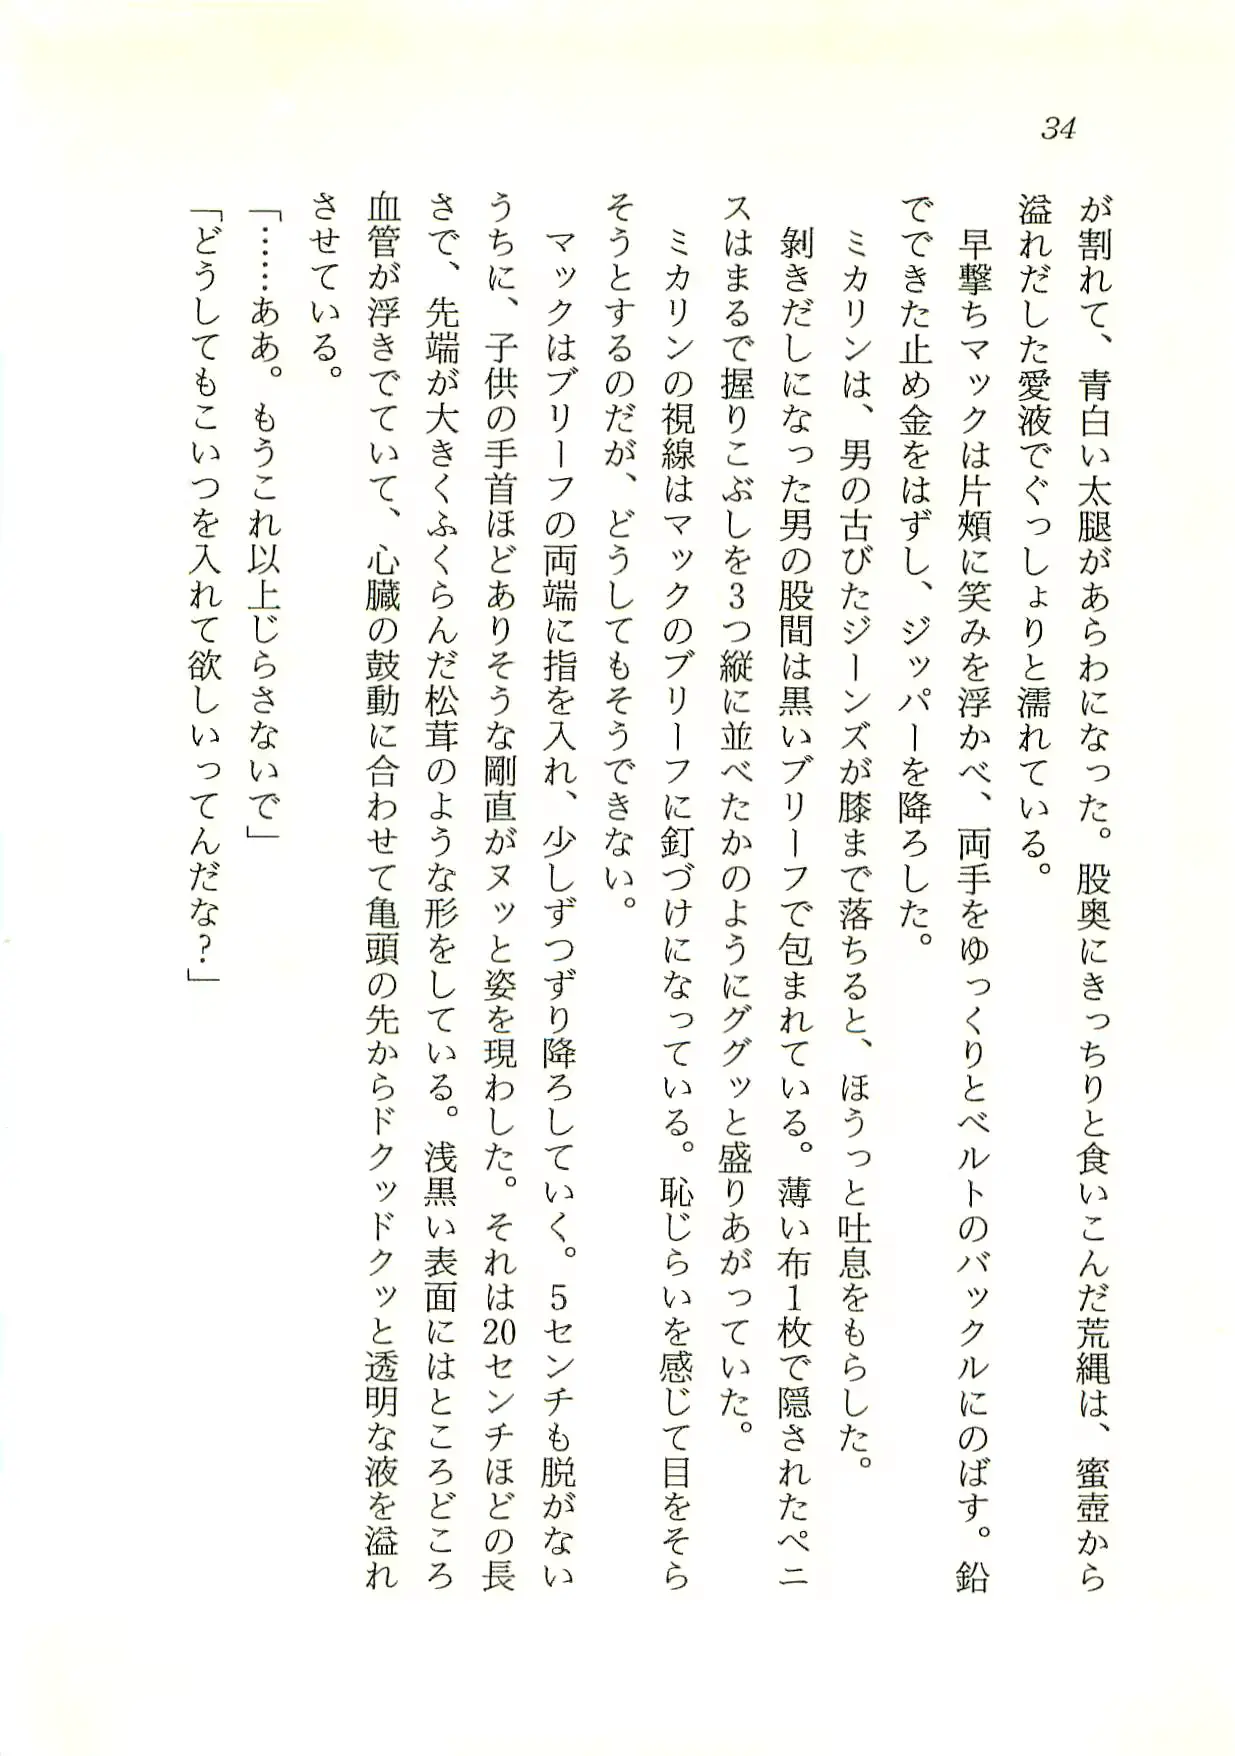 34
が割れて、青白い太腿があらわになった。股奥にきっちりと食いこんだ荒縄は、蜜壺から
溢れだした愛液でぐっしょりと濡れている。
早撃ちマックは片頰に笑みを浮かべ、両手をゆっくりとベルトのバックルにのばす。鉛
でできた止め金をはずし、ジッパーを降ろした。
ミカリンは、男の古びたジーンズが膝まで落ちると、ほうっと吐息をもらした。
剝きだしになった男の股間は黒いブリーフで包まれている。薄い布1枚で隠されたペニ
スはまるで握りこぶしを3つ縦に並べたかのようにググッと盛りあがっていた。
ミカリンの視線はマックのブリーフに釘づけになっている。恥じらいを感じて目をそら
そうとするのだが、どうしてもそうできない。
マックはブリーフの両端に指を入れ、少しずつずり降ろしていく。5センチも脱がない
うちに、子供の手首ほどありそうな剛直がヌッと姿を現わした。それは20センチほどの長
さで、先端が大きくふくらんだ松茸のような形をしている。浅黒い表面にはところどころ
血管が浮きでていて、心臓の鼓動に合わせて亀頭の先からドクッドクッと透明な液を溢れ
させている。
「……ああ。もうこれ以上じらさないで」
「どうしてもこいつを入れて欲しいってんだな？」